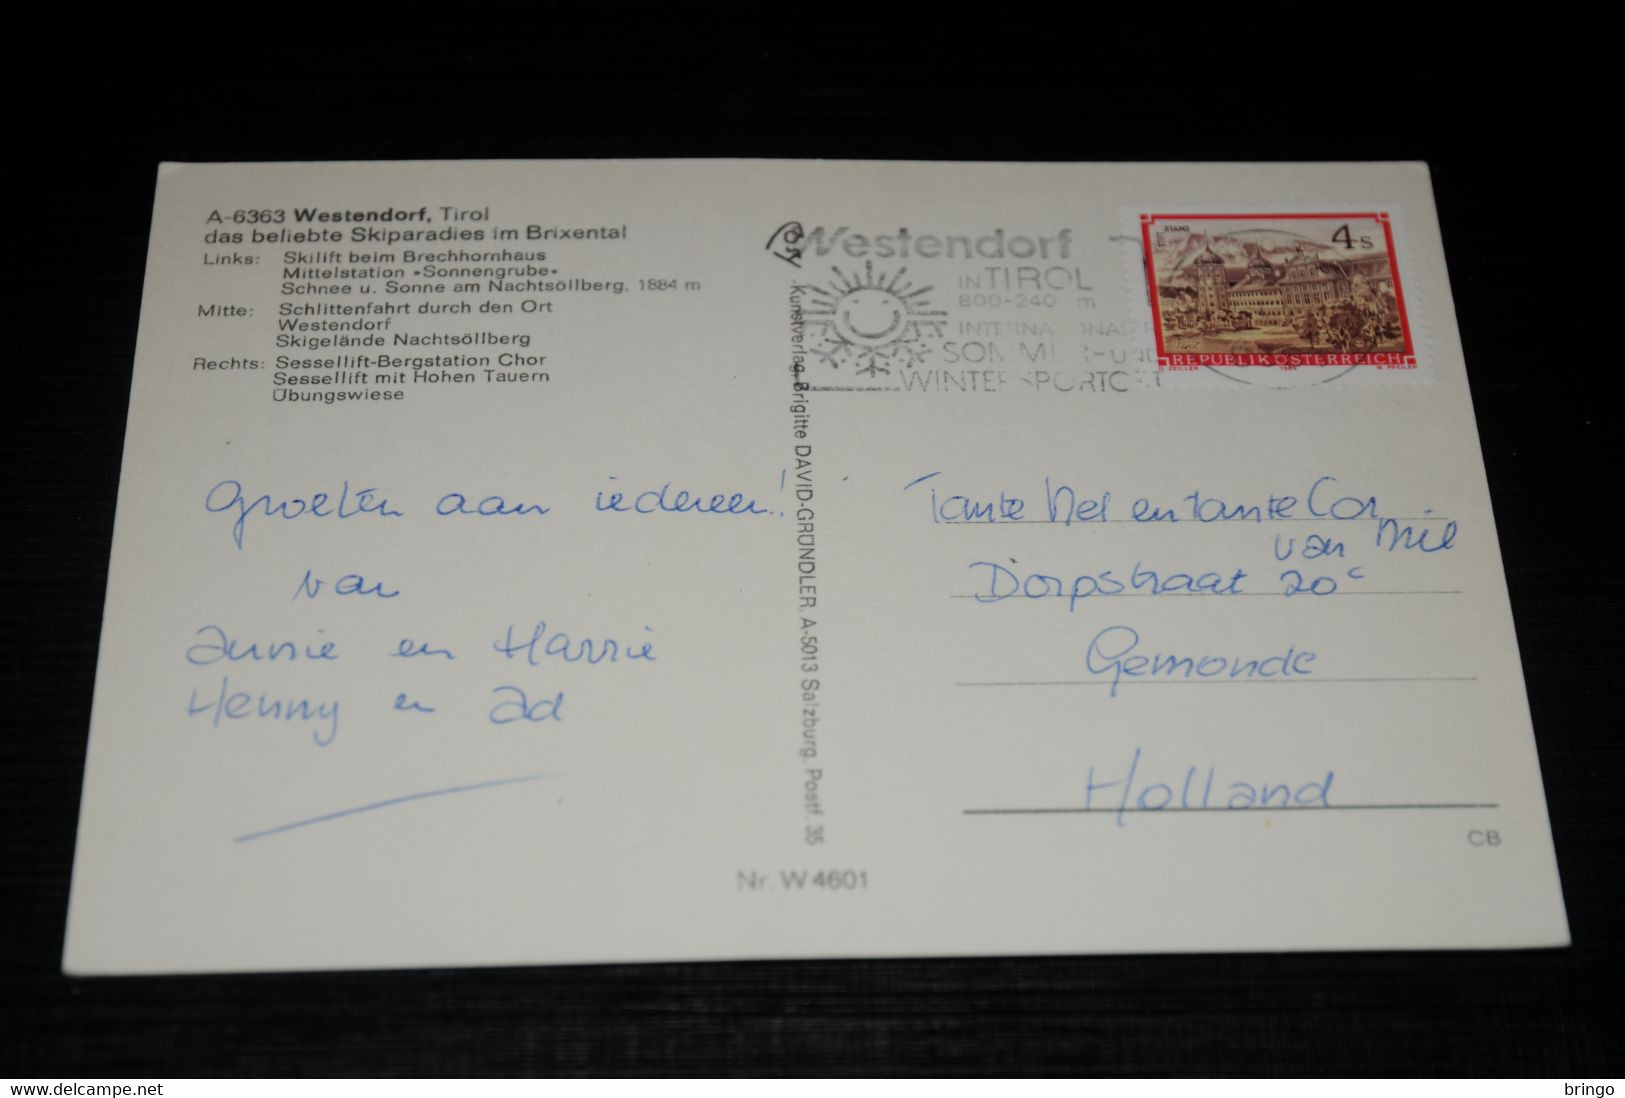 A-6363 Westendorf, Tirol
das beliebte Skiparadies im Brixental
Links: Skilift beim Brechhornhaus
Mittelstation »Sonnengrube«
Schnee u. Sonne am Nachtsöllberg, 1884 m
Mitte: Schlittenfahrt durch den Ort
Westendorf
Skigelände Nachtsöllberg
Rechts: Sessellift-Bergstation Chor
Sessellift mit Hohen Tauern
Übungswiese
Groeten aan iedereen!
van
Annie en Harrie
Henny en Ad
Kunstverlag Brigitte DAVID-GRÜNDLER, A-5013 Salzburg, Postf. 35
Nr. W 4601
Westendorf
IN TIROL
800-240 m
INTERNATIONALER
SOMMER-UND
WINTERSPORTORT
STIFT STAMS
4 S
REPUBLIK ÖSTERREICH
O. ZEILLER 1984 W. PFEILER
Tante Nel en Tante Cor
van Mil
Dorpstraat 20c
Gemonde
Holland
CB
bringo
delcampe.net